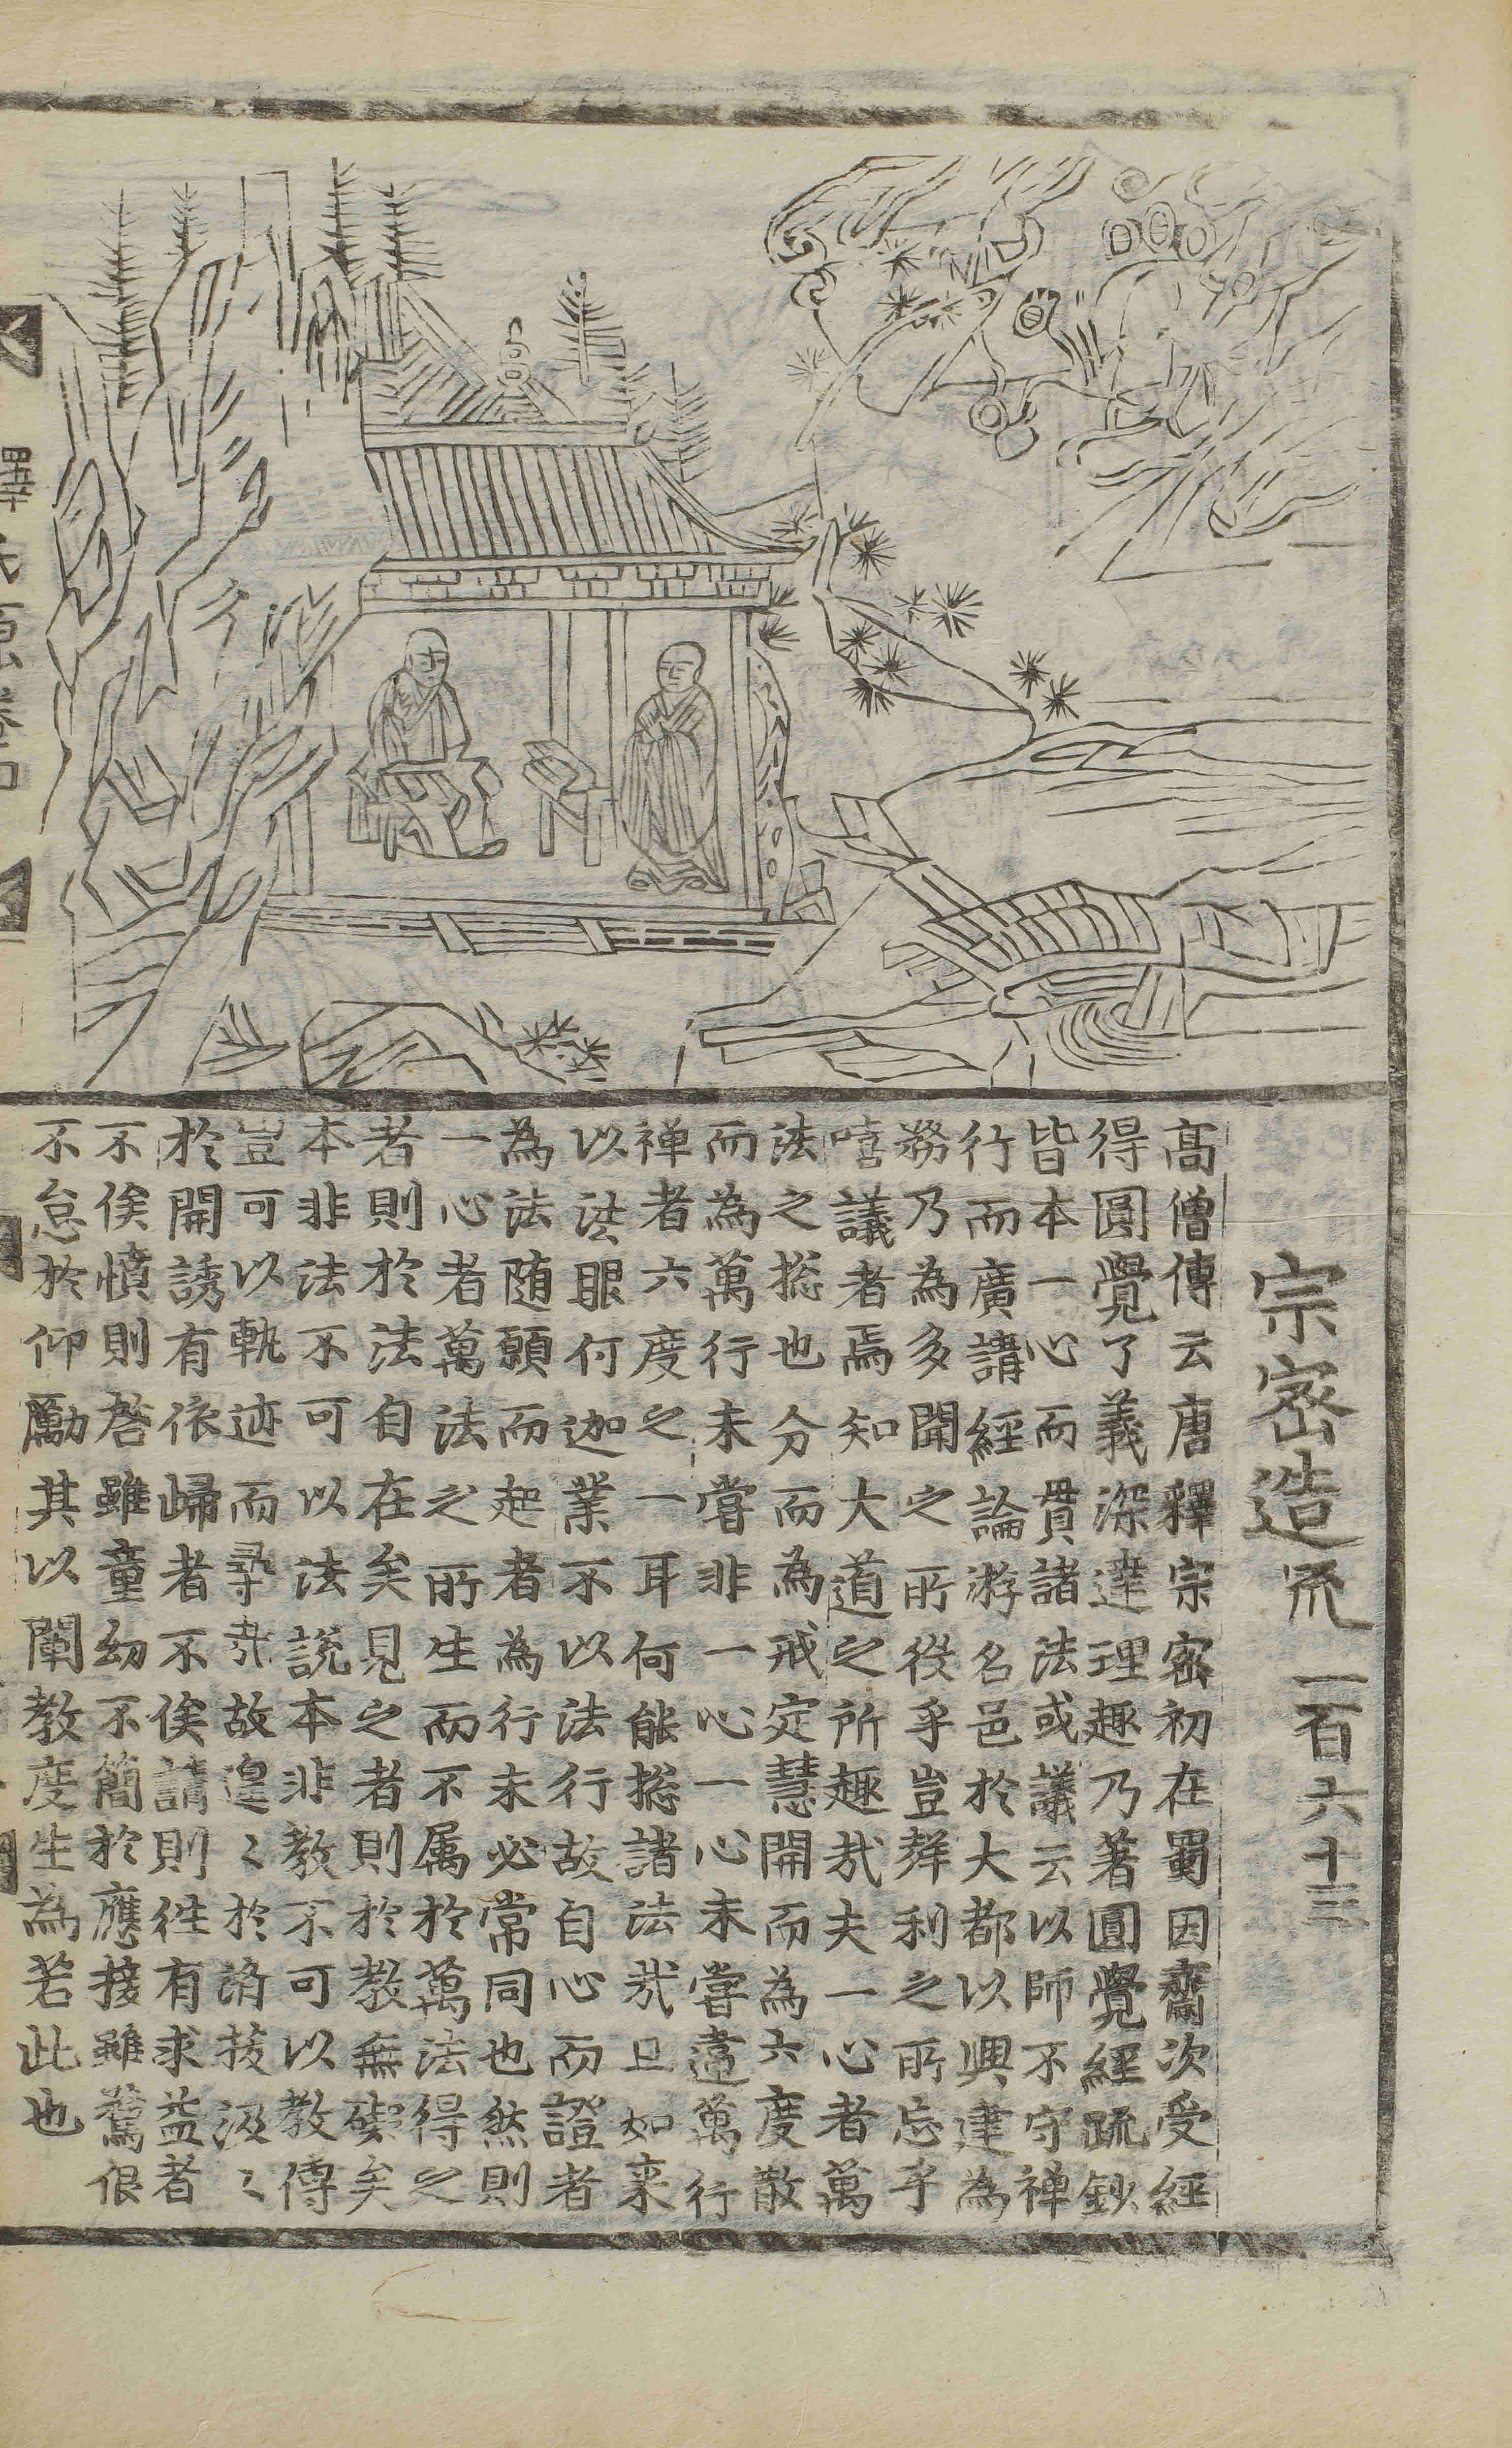 宗密造疏 一百六十三
高僧傳云唐釋宗密初在蜀因齋次受經
得圓覺了義深達理趣乃著圓覺經疏鈔
皆本一心而貫諸法或議云以師不守禅
行而廣講經論游名邑於大都以興達為
務乃為多聞之所役乎豈聲利之所忘乎
嘻議者焉知大道之所趣㢤夫一心者萬
法之捴也分而為戒定慧開而為六度散
而為萬行未嘗非一心一心未嘗違萬行
禅者六度之一耳何能捴諸法㢤且如来
以法眼付迦業不以法行故自心而證者
為法随願而起者為行未必常同也然則
一心者萬法之所生而不属於萬法得之
者則於法自在矣見之者則於教無礙矣
本非法不可以法説本非教不可以教傳
豈可以軌迹而尋㢤故遑〻於濟拔汲〻
於開誘有依歸者不俟請則徃有求益者
不俟憤則啓雖童幼不簡於應接雖驁佷
不怠於仰勵其以闡教度生為若此也
釋氏源卷四